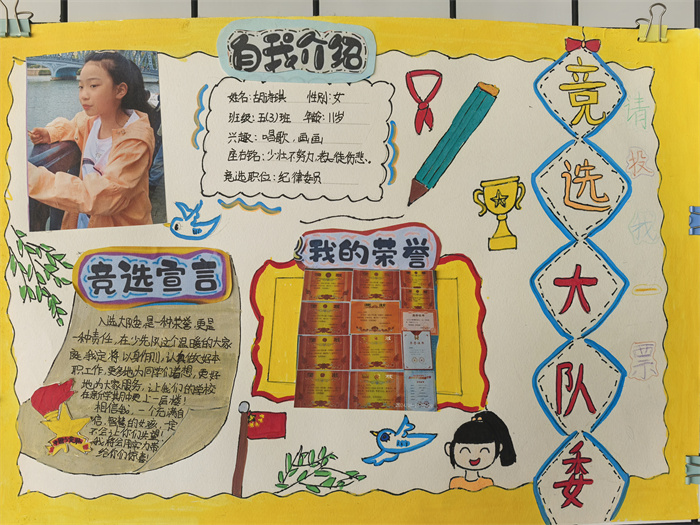 自我介绍
姓名:胡诗琪 性别:女
班级:五(3)班 年龄:11岁
兴趣:唱歌,画画
座右铭:少壮不努力,老大徒伤悲。
竞选职位:纪律委员
竞选大队委
请投我一票
竞选宣言
入选大队委是一种荣誉,更是
一种责任,在少先队这个温暖的大家
庭,我定将以身作则,认真做好本
职工作,更多地为同学们着想,更好
地为大家服务,让我们的学校
在新学期中更上一层楼!
相信我,一个充满自
信、智慧的女孩,定
不会让你们失望!
我将会用实力带
给你们惊喜!
我的荣誉